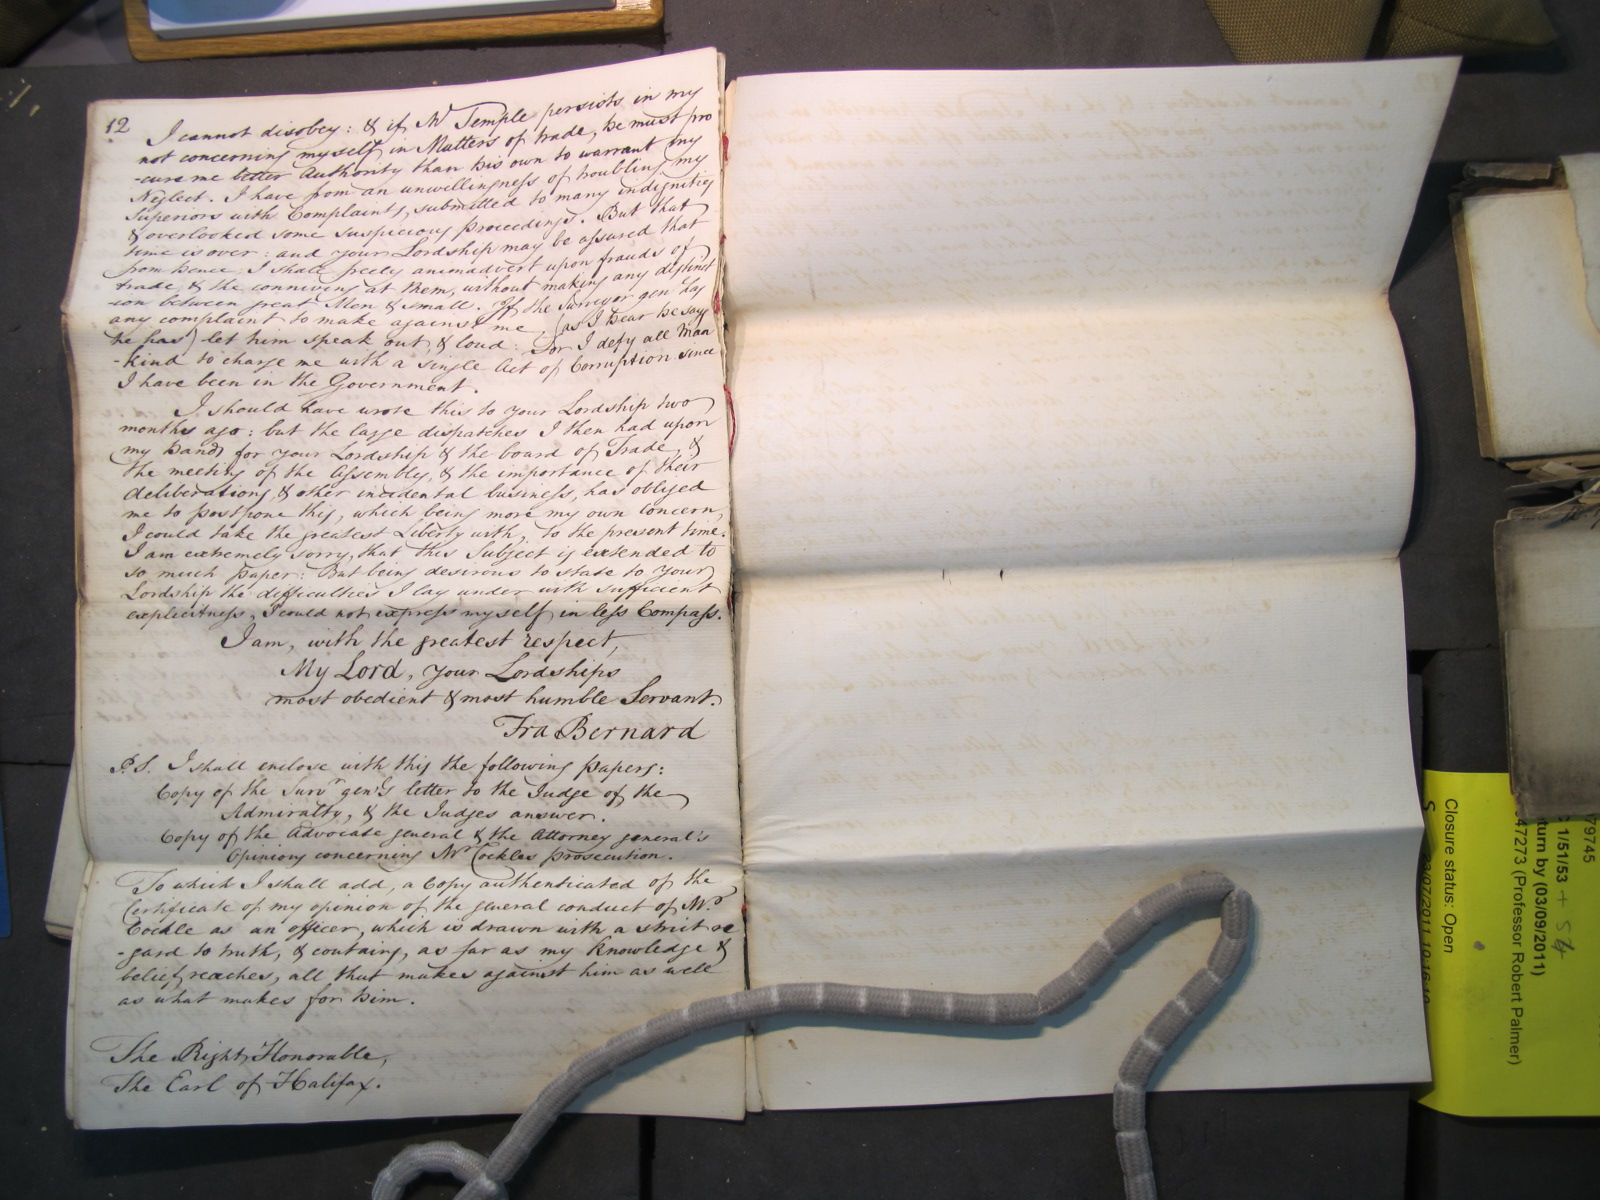 12
I cannot disobey: & if Mr Temple persists in my
not concerning myself in Matters of trade, he must pro
-cure me better Authority than his own to warrant my
Neglect. I have from an unwillingness of troubling my
Superiors with Complaints, submitted to many indignities
& overlooked some suspicious proceedings. But that
time is over: and your Lordship may be assured that
from hence I shall freely animadvert upon frauds of
trade, & the conniving at them, without making any distinct
-ion between great Men & small. If the Surveyor gen has
any complaint to make against me, (as I hear he says
he has) let him speak out, & loud: For I defy all Man
-kind to charge me with a single Act of Corruption since
I have been in the Government.
I should have wrote this to your Lordship two
months ago: but the large dispatches I then had upon
my hands for your Lordship & the board of Trade, &
the meeting of the Assembly, & the importance of their
deliberations & other incidental business, has obliged
me to postpone this, which being more my own Concern,
I could take the greatest Liberty with, to the present time.
I am extremely sorry, that this Subject is extended to
so much paper: But being desirous to state to your
Lordship the difficulties I lay under with sufficient
explicitness, I could not express myself in less Compass.
I am, with the greatest respect,
My Lord, your Lordships
most obedient & most humble Servant.
Fra Bernard
P.S. I shall enclose with this the following papers:
Copy of the Survr gen'l's letter to the Judge of the
Admiralty, & the Judges answer.
Copy of the Advocate general & the Attorney general's
Opinions concerning Mr Cockles prosecution.
To which I shall add, a Copy authenticated of the
Certificate of my opinion of the general conduct of Mr
Cockle as an officer, which is drawn with a strict re
-gard to truth, & contains, as far as my knowledge &
belief reaches, all that makes against him as well
as what makes for him.
The Right Honorable,
The Earl of Halifax.
79745
1/51/53 + 54
turn by (03/09/2011)
47273 (Professor Robert Palmer)
Closure status: Open